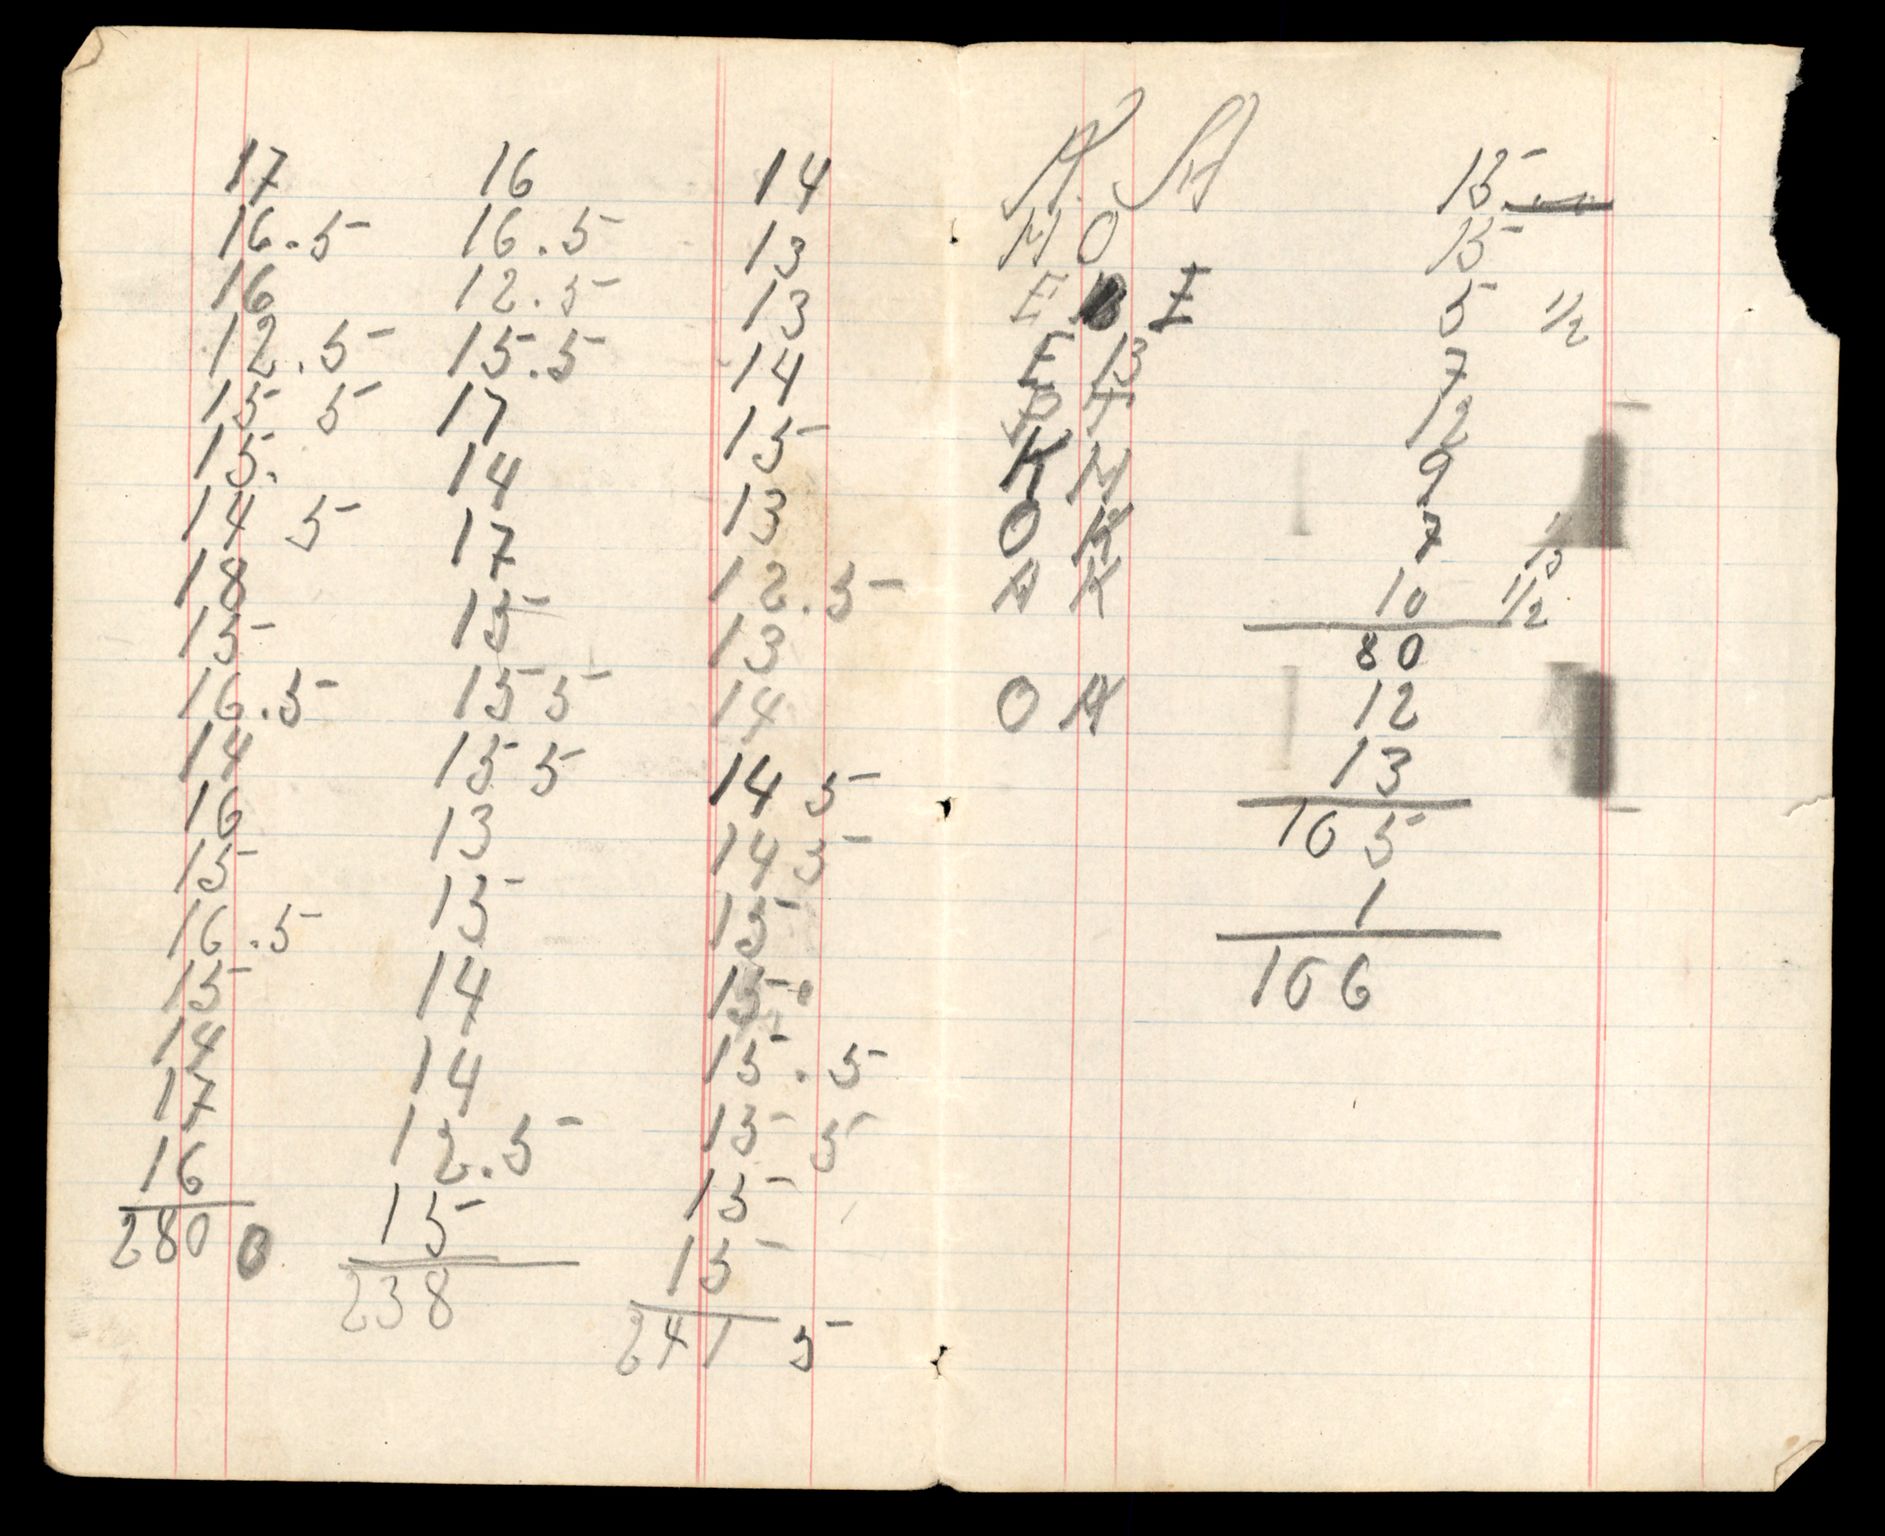 17
16.5
16
12.5
15 5
15.
14 5
18
15
16.5
14
16
15
16.5
15
14
17
16
280
16
16.5
12.5
15.5
17
14
17
15
15 5
15 5
13
15
14
14
12.5
15
238
14
13
13
14
15
13
12.5
13
14
14 5
14 5
15
15
15.5
15 5
15
15
241 5
M O
E B E
E B
K M
O K
A K
O A
15
15
5 1/2
7
12
9
7
10 1/2
80
12
13
105
1
106